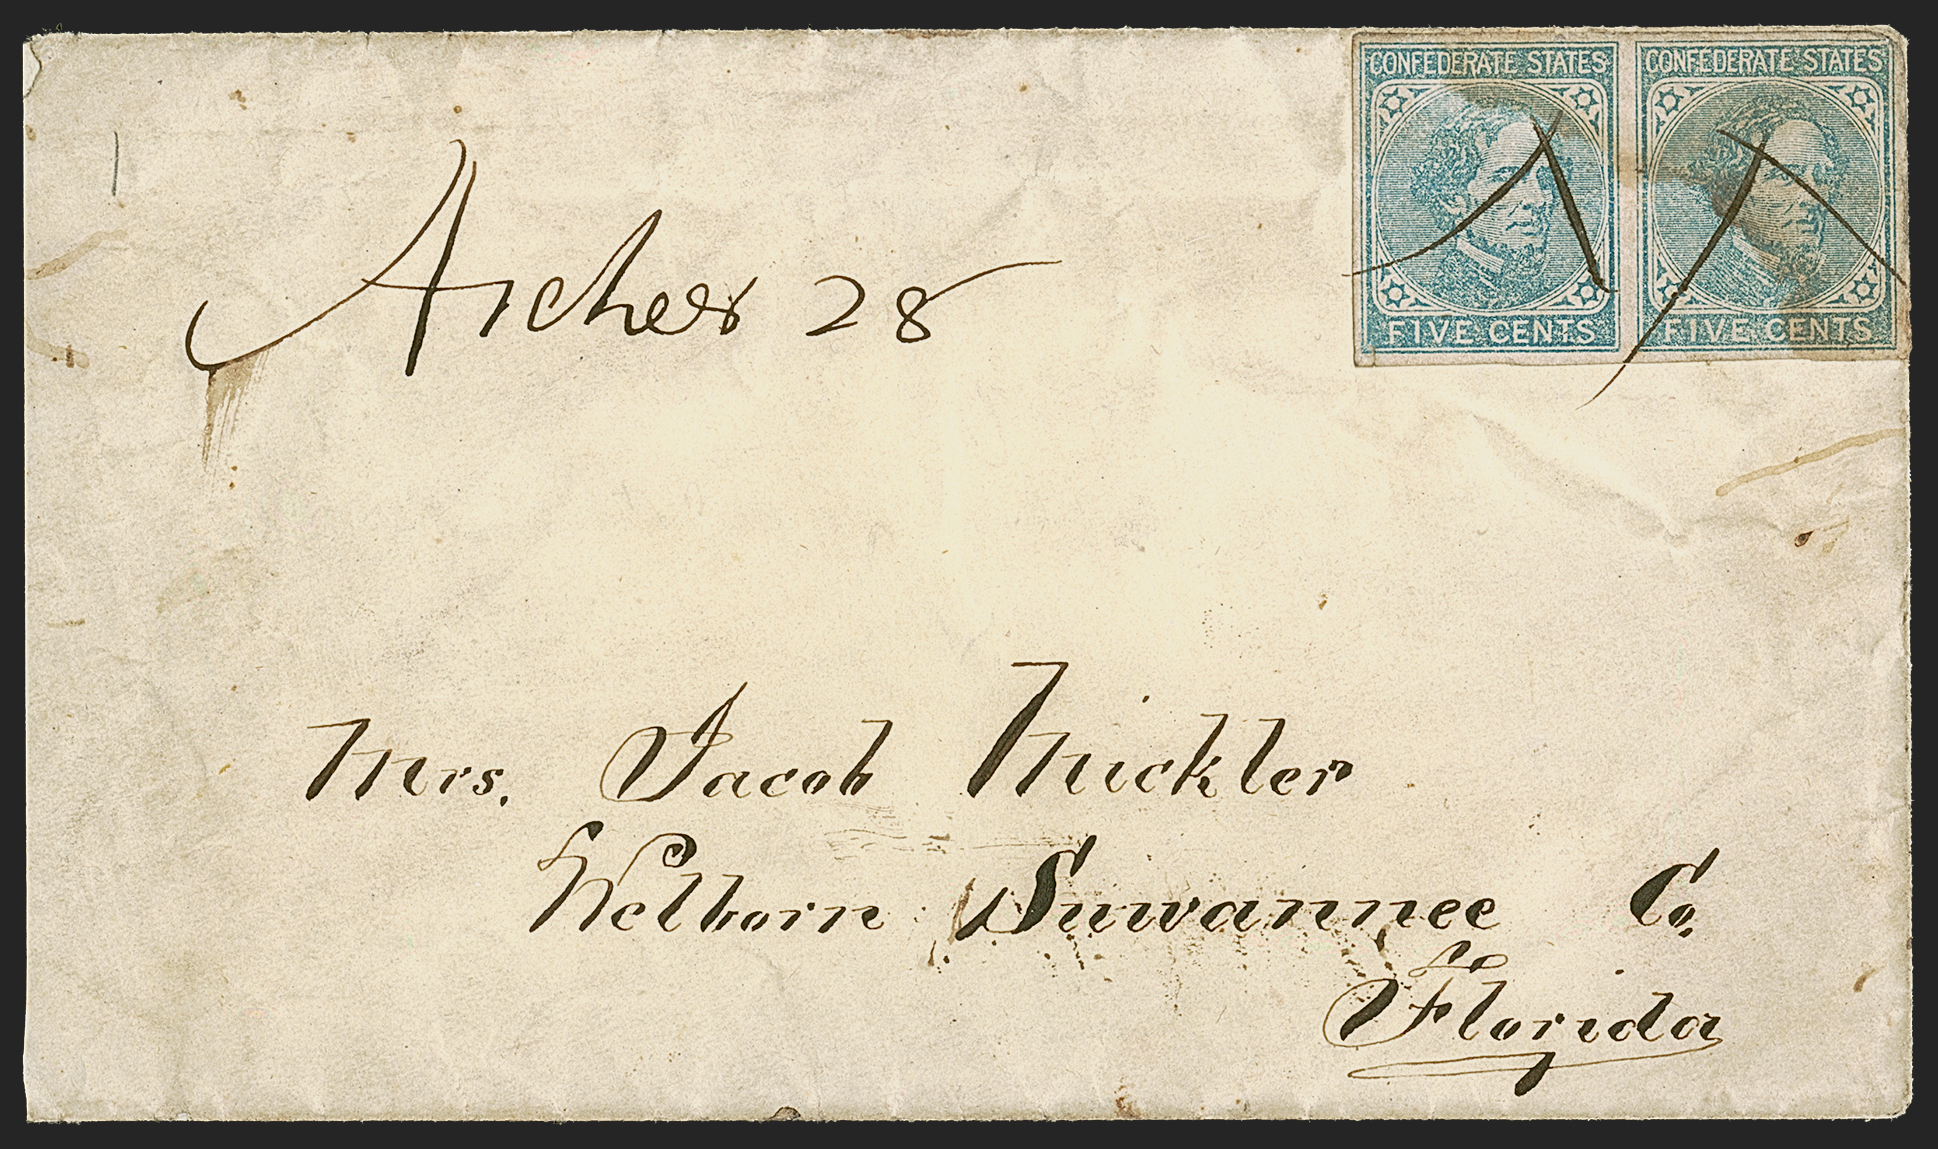 CONFEDERATE STATES CONFEDERATE STATES
FIVE CENTS FIVE CENTS
Archer 28
Mrs. Jacob Mickler
Welborn Suwannee Co.
Florida